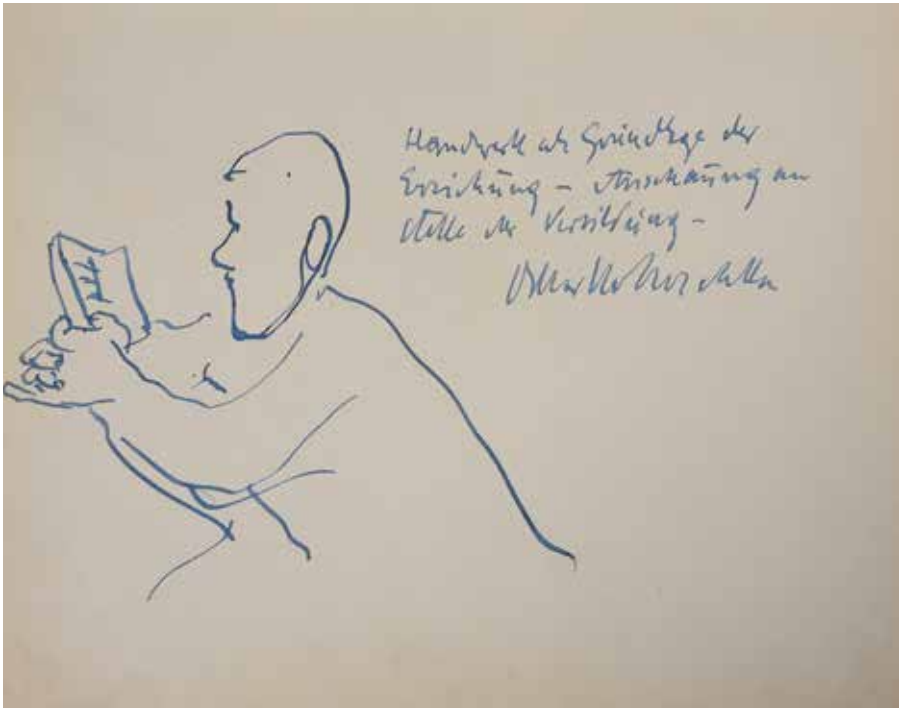 Handwerk als Grundlage der
Erziehung – Anschauung an
stelle der Verbildung –
Oskar Kokoschka